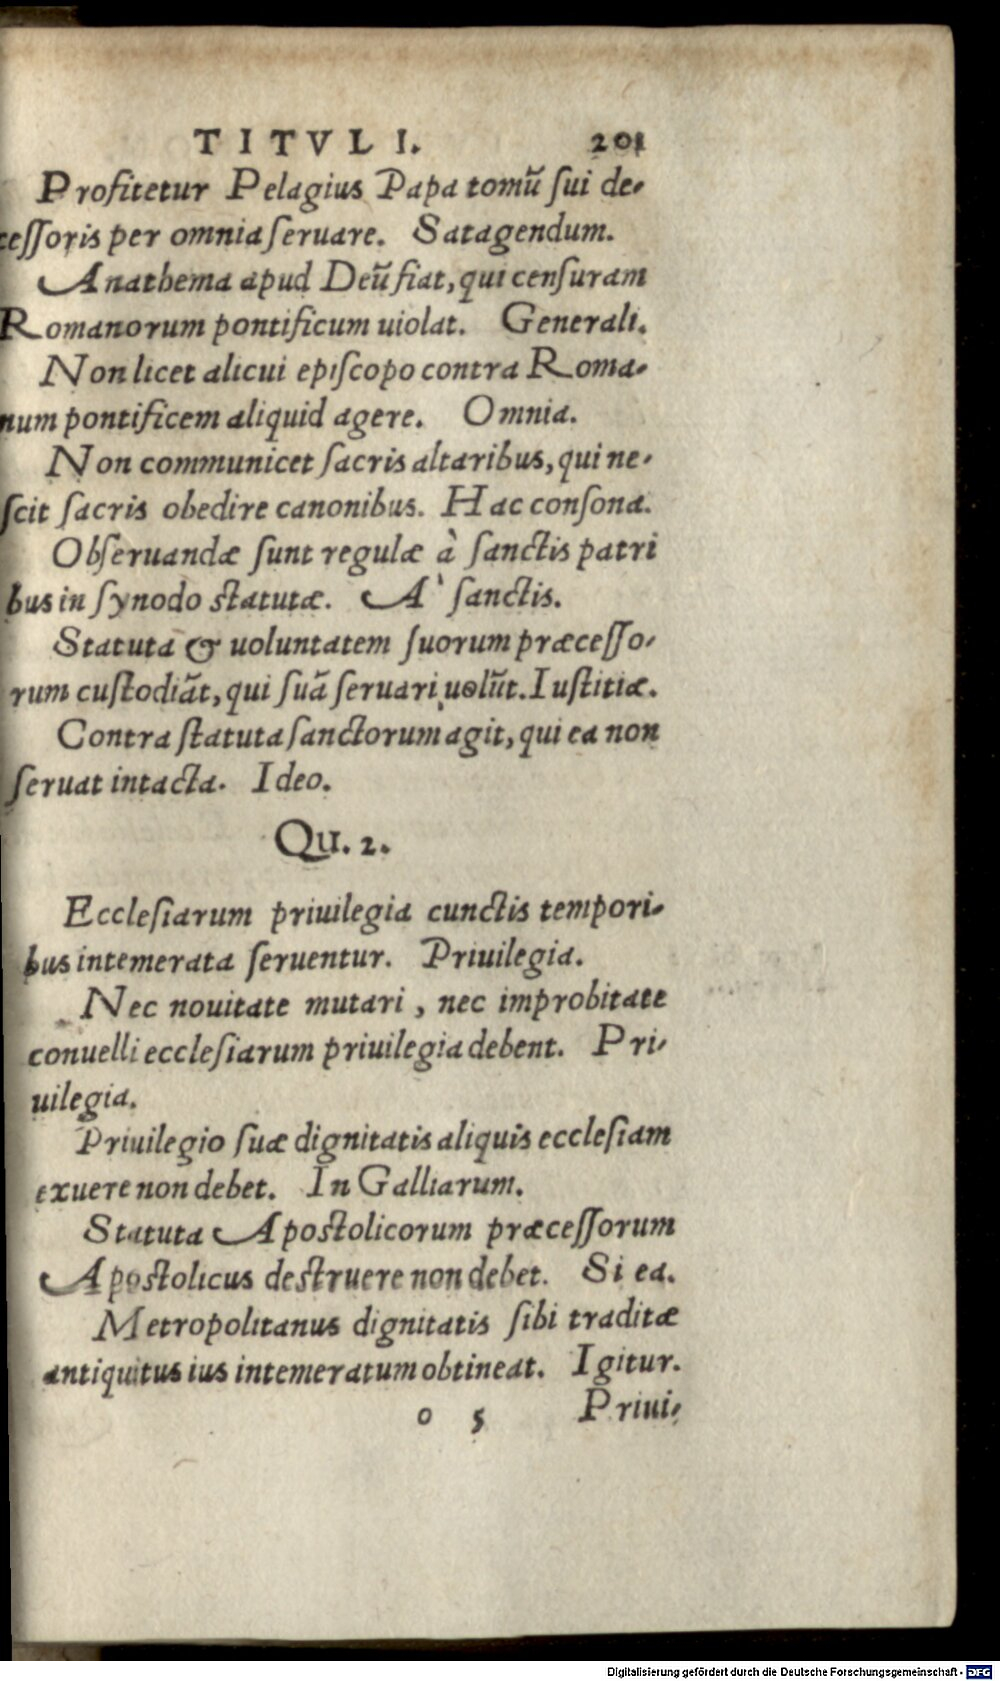 TITVLI. 201
Profitetur Pelagius Papa tomũ ſui de-
ceſſoris per omnia ſeruare. Satagendum.
Anathema apud Deũ fiat, qui cenſuram
Romanorum pontificum uiolat. Generali.
Non licet alicui epiſcopo contra Roma-
num pontificem aliquid agere. Omnia.
Non communicet ſacris altaribus, qui ne-
ſcit ſacris obedire canonibus. Hac conſona.
Obſeruandæ ſunt regulæ à ſanctis patri
bus in ſynodo ſtatutæ. A` ſanctis.
Statuta & uoluntatem ſuorum præceſſo-
rum cuſtodiãt, qui ſuã ſeruari uolũt. Iuſtitiæ.
Contra ſtatuta ſanctorum agit, qui ea non
ſeruat intacta. Ideo.
Qu. 2.
Eccleſiarum priuilegia cunctis tempori-
bus intemerata ſeruentur. Priuilegia.
Nec nouitate mutari, nec improbitate
conuelli eccleſiarum priuilegia debent. Pri-
uilegia.
Priuilegio ſuæ dignitatis aliquis eccleſiam
exuere non debet. In Galliarum.
Statuta Apoſtolicorum præceſſorum
Apoſtolicus deſtruere non debet. Si ea.
Metropolitanus dignitatis ſibi traditæ
antiquitus ius intemeratum obtineat. Igitur.
o 5 Priui-
Digitalisierung gefördert durch die Deutsche Forschungsgemeinschaft - DFG